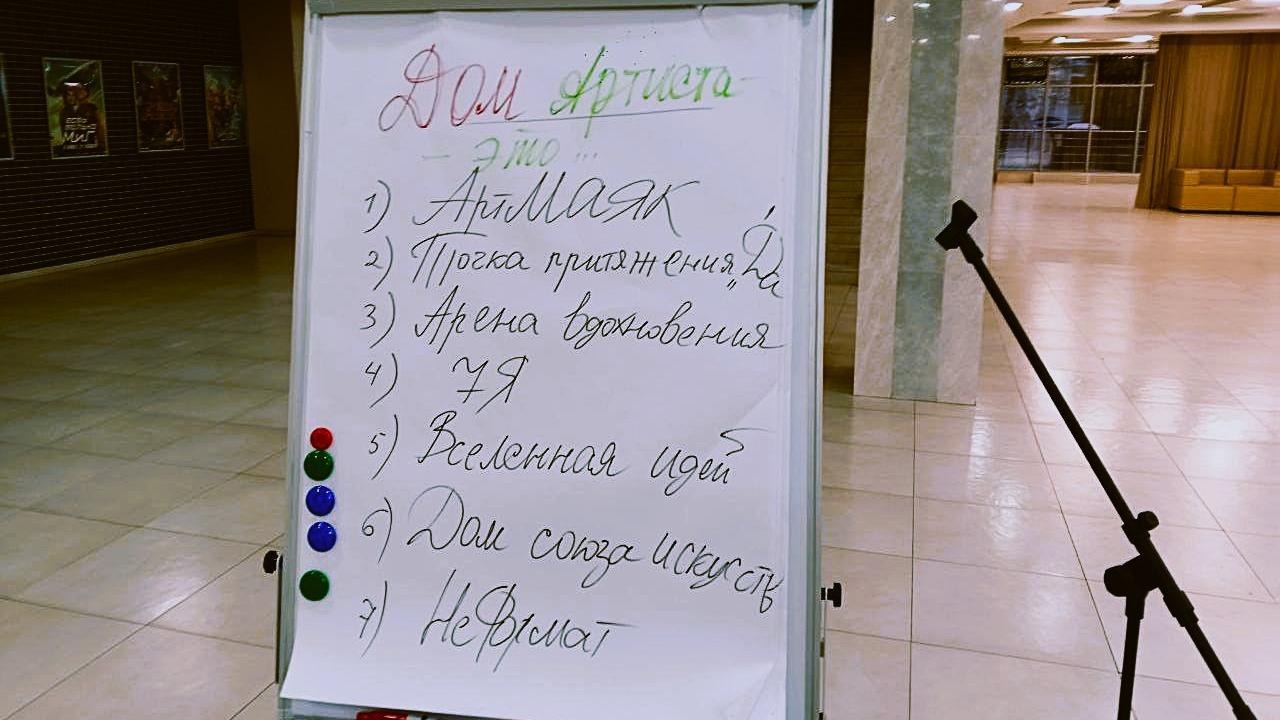 Дом Артиста -
- это ...
1) АртМАЯК
2) Точка притяжения „Да"
3) Арена вдохновения
4) 7Я
5) Вселенная идей
6) Дом союза искусств
7) НеФормат
МиГ